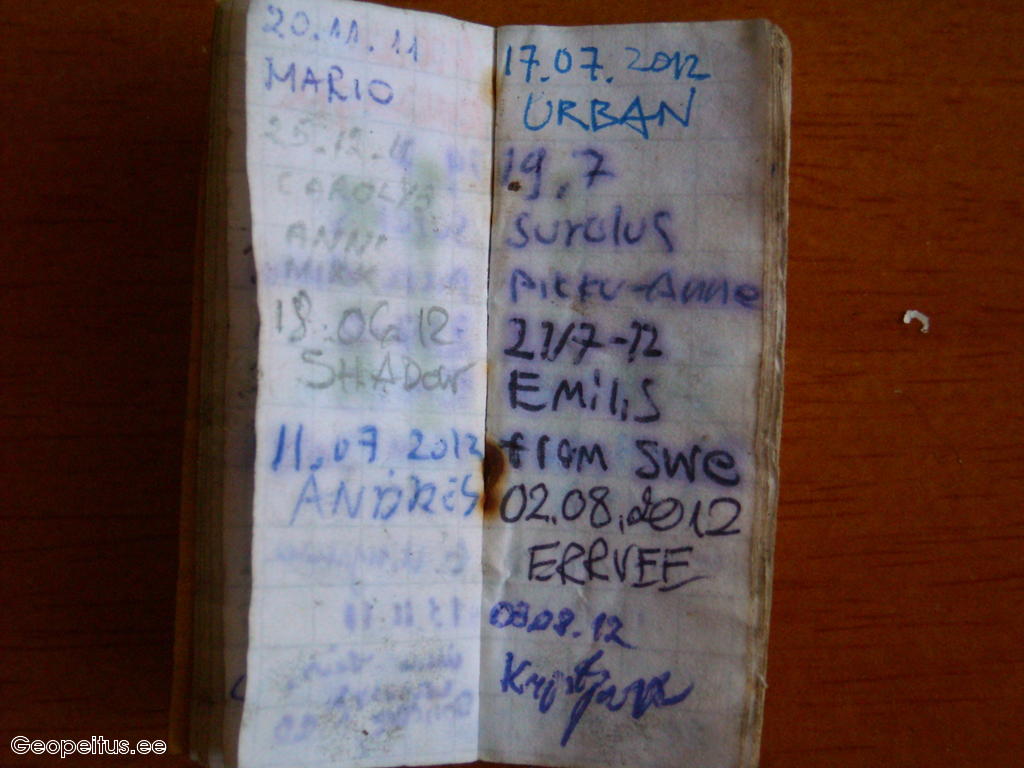 20.11.11
MARIO
25.12.11
CAROLYS
ANNI
18.06.12
SHADOW
11.07.2012
ANDRES
17.07.2012
URBAN
19.7
surolus
Pikku-Anne
21/7-12
Emilis
from swe
02.08.2012
ERRVEE
03.08.12
Geopeitus.ee